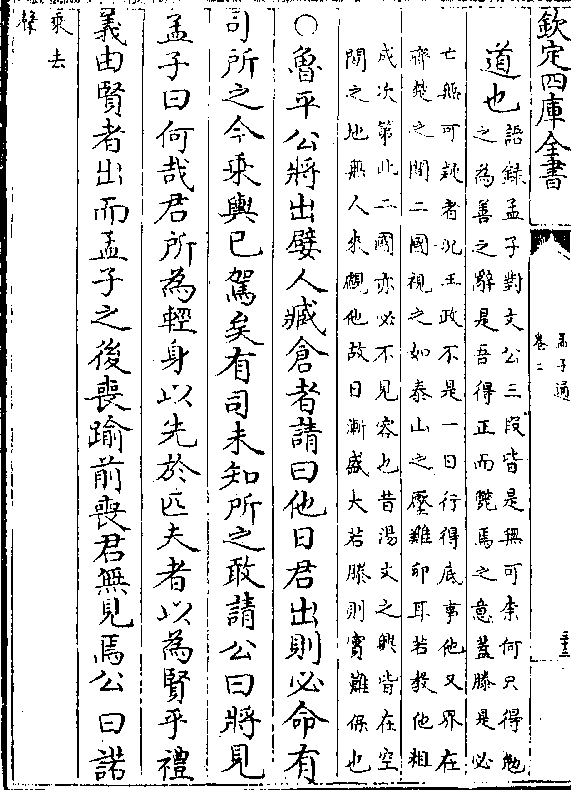 欽定四庫全書
孟子通
卷二
三三
道也
語錄孟子對文公三段皆是無可奈何只得勉
之為善之辭是吾得正而斃焉之意蓋滕是必
亡無可疑者況王政不是一日行得底事他又界在
齊楚之間二國視之如泰山之壓雞卵耳若教他粗
成次第此二國亦必不見容也昔湯文之興皆在空
閒之地無人來覷他故日漸盛大若滕則實難保也
○魯平公將出嬖人臧倉者請曰他日君出則必命有
司所之今乘輿已駕矣有司未知所之敢請公曰將見
孟子曰何哉君所為輕身以先於匹夫者以為賢乎禮
義由賢者出而孟子之後喪踰前喪君無見焉公曰諾
乘去
聲